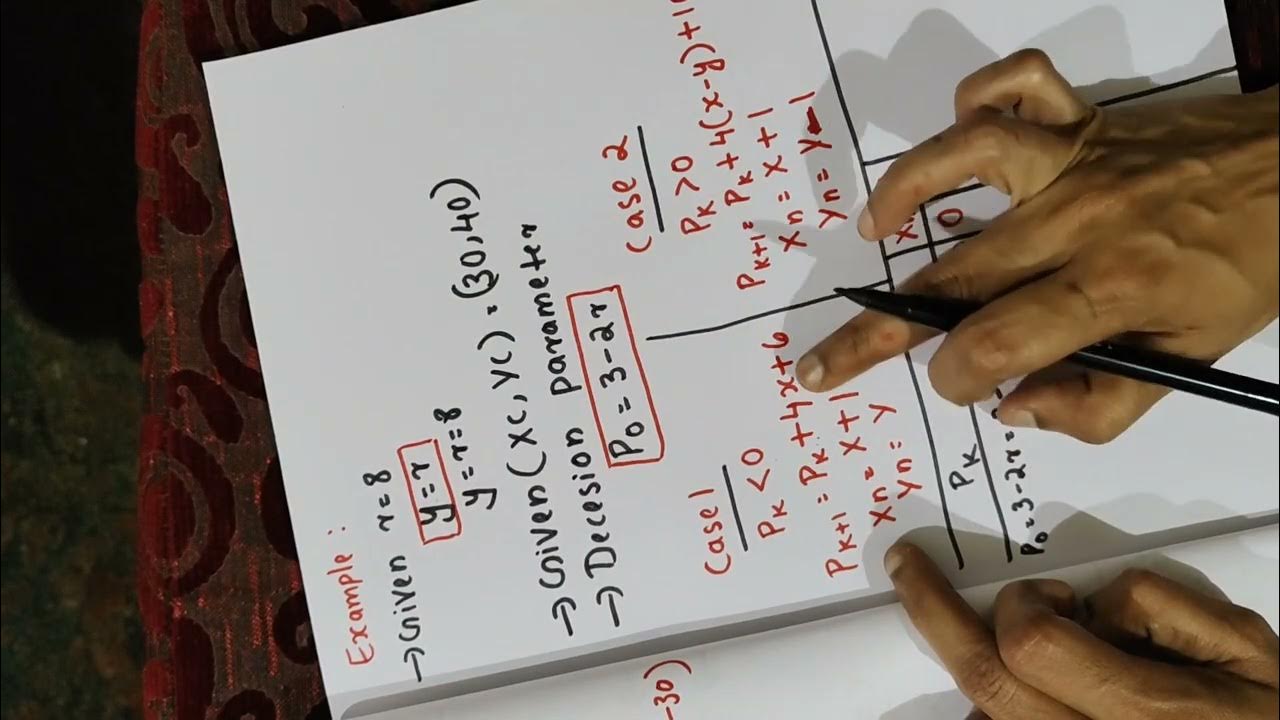 Example :
→ Given r=8
y=r
y=r=8
→ Given (xc, yc) = (30,40)
→ Decesion parameter
P0 = 3-2r
Case 1
PK < 0
PK+1 = PK + 4x+6
xn = x+1
yn = y
Case 2
PK > 0
PK+1 = PK + 4(x-y)+1
xn = x+1
yn = y-1
PK
0
P0 = 3-2r =
-30)